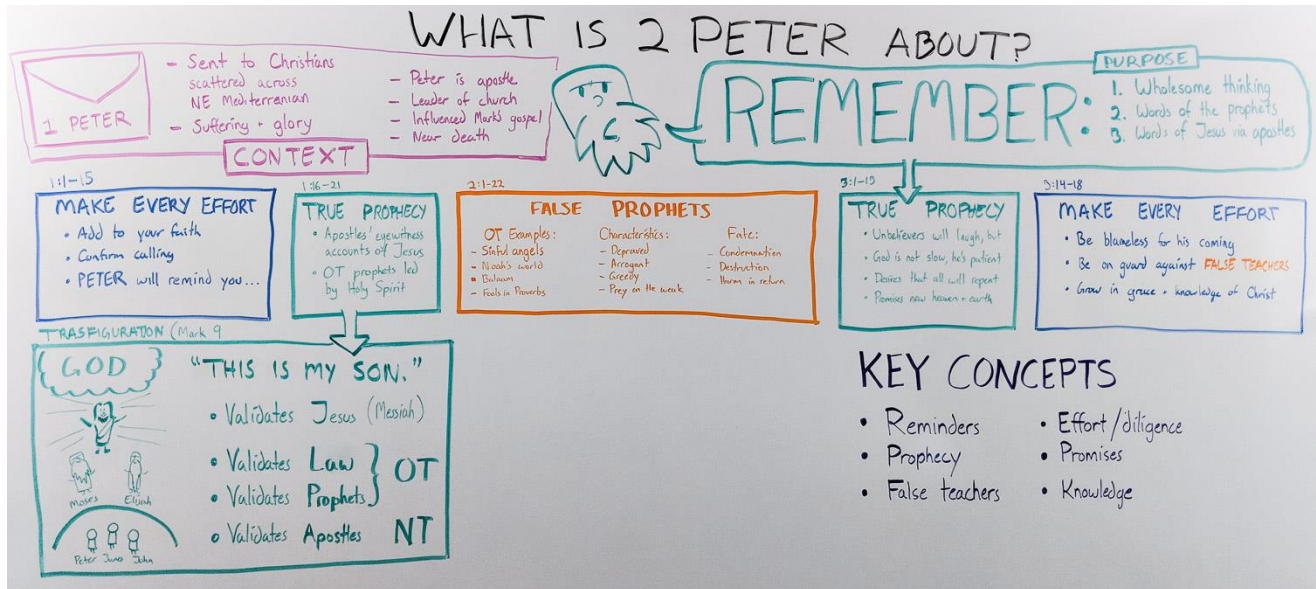 WHAT IS 2 PETER ABOUT?
1 PETER
- Sent to Christians
scattered across
NE Mediterrenian
- Suffering + glory
- Peter is apostle
- Leader of church
- Influenced Mark's gospel
- Near death
CONTEXT
REMEMBER:
PURPOSE
1. Wholesome thinking
2. Words of the prophets
3. Words of Jesus via apostles
1:1-15
MAKE EVERY EFFORT
• Add to your faith
• Confirm calling
• PETER will remind you...
1:16-21
TRUE PROPHECY
• Apostles' eyewitness
accounts of Jesus
• OT prophets led
by Holy Spirit
2:1-22
FALSE PROPHETS
OT Examples:
- Sinful angels
- Noah's world
- Balaam
- Fools in Proverbs
Characteristics:
- Depraved
- Arrogant
- Greedy
- Prey on the weak
Fate:
- Condemnation
- Destruction
- Harm in return
3:1-13
TRUE PROPHECY
• Unbelievers will laugh, but
• God is not slow, he's patient
• Desires that all will repent
• Promises new heaven + earth
3:14-18
MAKE EVERY EFFORT
• Be blameless for his coming
• Be on guard against FALSE TEACHERS
• Grow in grace + knowledge of Christ
TRASFIGURATION (Mark 9
GOD
Moses
Elijah
Peter James John
"THIS IS MY SON."
• Validates Jesus (Messiah)
• Validates Law
• Validates Prophets } OT
• Validates Apostles NT
KEY CONCEPTS
• Reminders
• Prophecy
• False teachers
• Effort/diligence
• Promises
• Knowledge